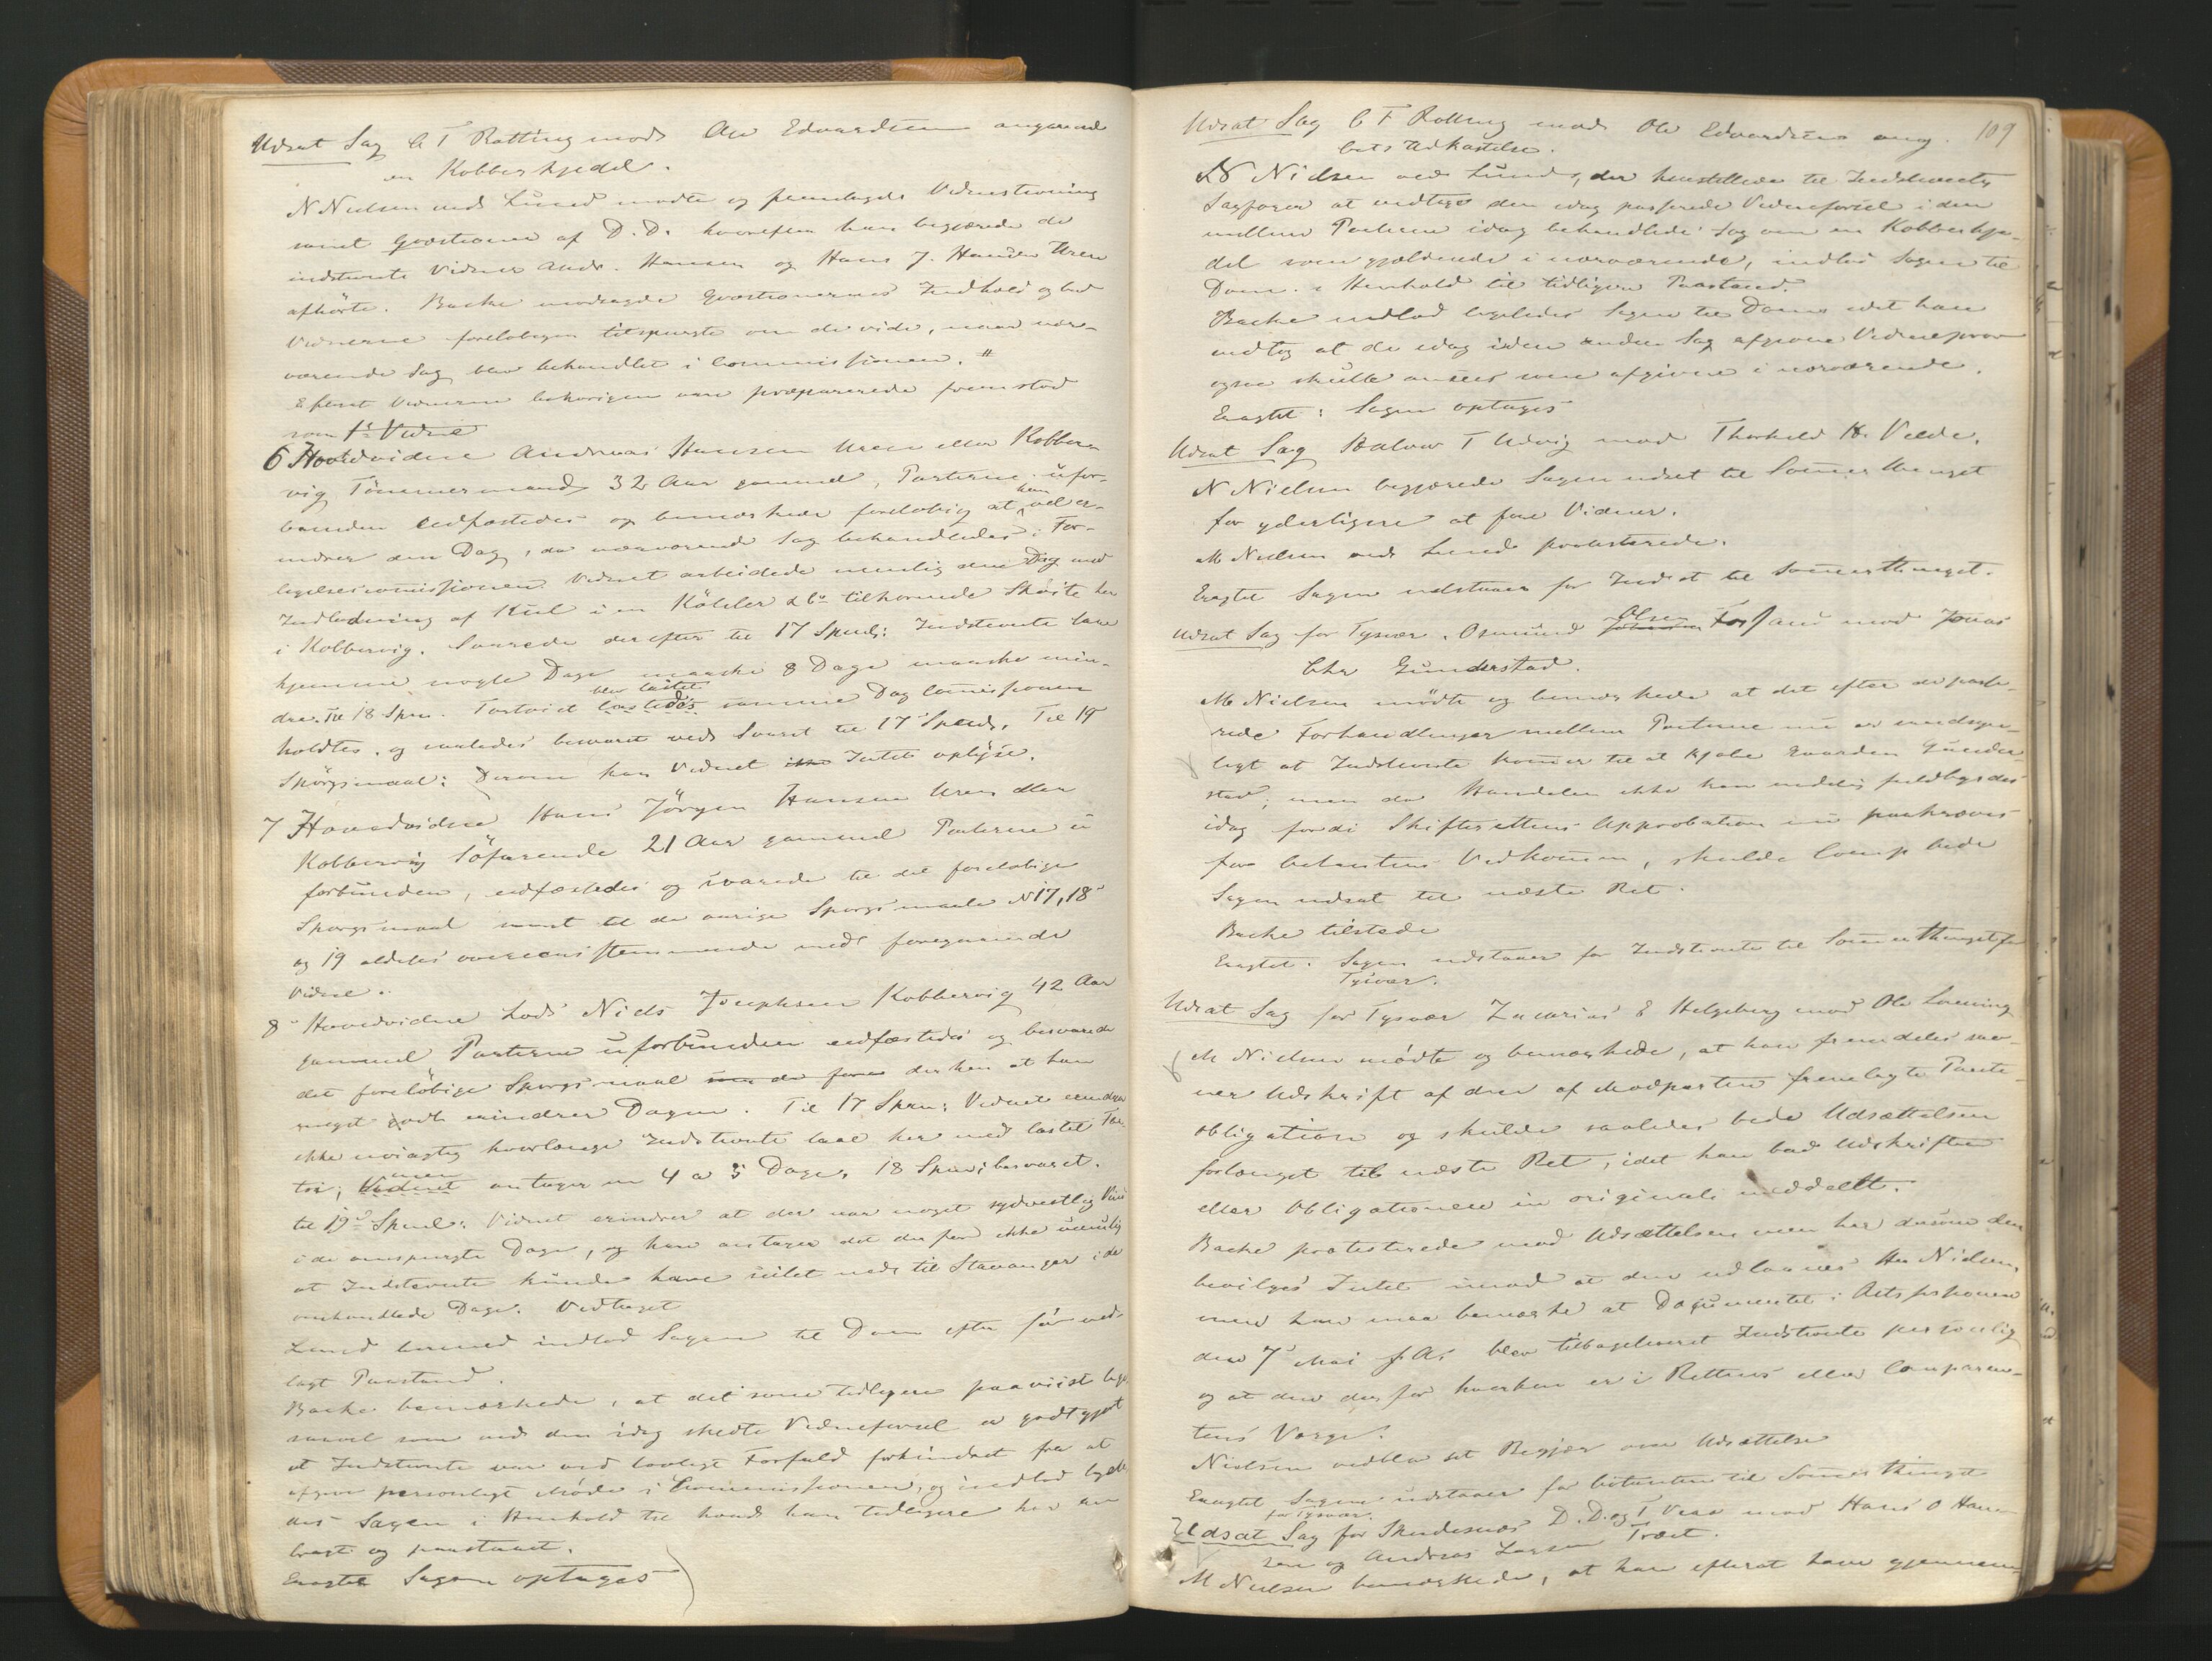 Udsat Sag C T Rötting mod Ole Edvardsen angaaende
en Kobberkjedel.
N Nielsen med Lund mødte og fremlagde Vidnestevning
samt Qvæstioner af D. D. hvorefter han begjærede de
indstevnte Vidner Andr. Hansen og Hans J. Hansen Uren
afhørte. Backe modsagde Qvæstionernes Indhold og bad
Vidnerne foreløbigen tilspurgte om de vide, naar nær-
værende Sag blev behandlet i Commissionen. #
Efterat Vidnerne behørigen vare præparerede fremstod
som 1ste Vidne
6 Hovedvidne Andreas Hansen Uren eller Kobber-
vig Tømmermand 32 Aar gammel, Parterne ufor-
bunden edfæstedes og bemærkede foreløbig at han vel er-
indrer den Dag, da nærværende Sag behandledes i For-
ligelsescommissionen Vidnet arbeidede nemlig den Dag med
Indladning af Kul i en Köhler & Co tilhørende Skøite her
i Kobbervig. Svarede derefter til 17 Spml: Indstevnte laae
hjemme nogle Dage maaske 8 Dage maaske min-
dre. Til 18 Spm. Fartøiet lastedes blev lastet samme Dag Comissionen
holdtes, og saaledes besvaret ved Svaret til 17 Spml. Til 19
Spørgsmaal: Derom kan Vidnet ikke Intet oplyse.
7 Hovedvidne Hans Jörgen Hansen Uren eller
Kobbervig Söfarende 21 Aar gammel Parterne u
forbunden, edfæstedes og svarede til det foreløbige
Spørgsmaal samt til de øvrige Spørgsmaale No 17, 18
og 19 aldeles overeensstemmende med foregaaende
Vidne.
8 Hovedvidne Lods Niels Josephsen Kobbervig 42 Aar
gammel Parterne uforbunden edfæstedes og besvarede
det foreløbige Spørgsmaal derhen at han
meget godt erindrer Dagen. Til 17 Spm: Vidnet erindrer
ikke nøiagtig hvorlænge Indstevnte laae her med lastet Far-
tøi; Vidnet men antager en 4 a 5 Dage, 18 Spm: besvaret.
til 19de Spml: Vidnet erindrer at der var noget sydvestlig Vind
i de omspurgte Dage, og han antager det derfor ikke umulig
at Indstevnte kunde have seilet ned til Stavanger i de
omhandlede Dage. Vedtaget
Lund hermed indlod Sagen til Dom efter før ned-
lagt Paastand.
Backe bemærkede, at det som tidligere paaviist lige-
saavel som ved den idag skedte Vidneførsel er godtgjort
at Indstevnte var ved lovligt Forfald forhindret fra at
afgive personligt Møde i Commissionen, og indlod ligele-
des Sagen i Henhold til hvad han tidligere har an-
bragt og paastaaet.
Eragtet Sagen optages
109
Udsat Sag C F Rötting mod Ole Edvardsen ang.
bets Udkastelse.
N Nielsen ved Lund, der henstillede til Indstevntes
Sagfører at vedtage den idag passerede Vidneførsel i den
mellem Parterne idag behandlede Sag om en Kobberkje-
del som gjældende i nærværende, indlod Sagen til
Dom i Henhold til tidligere Paastand.
Backe indlod ligeledes Sagen til Dom idet han
vedtog at de idag i den anden Sag afgivne Vidneprov
ogsaa skulle ansees som afgivne i nærværende.
Eragtet: Sagen optages
Udsat Sag Halvor T Udvig mod Thorkild H. Velde.
N Nielsen begjærede Sagen udsat til Sommerthinget
for yderligere at føre Vidner.
M Nielsen ved Lund protesterede.
Eragtet Sagen udstaaer for Indst til Sommerthinget.
Udsat Sag for Tysvær. Osmund Olsen Forsand mod Jonas
Chr Gunderstad.
M Nielsen mødte og bemærkede at det efter de passe-
rede Forhandlinger mellem Parterne nu er sandsyn-
ligt at Indstevnte kommer til at kjøbe Gaarden Gunder-
stad; men da Handelen ikke kan endelig fuldbyrdes
idag fordi Skifterettens Approbation nu paakræves
for Citantens Vedkommen, skulde Comp bede
Sagen udsat til næste Ret.
Backe tilstede
Eragtet. Sagen udstaaer for Indstevnte til Sommerthinget for
Tysvær.
Udsat Sag for Tysvær Zacarias E Helgeberg mod Ole
M Nielsen mødte og bemærkede, at han fremdeles sav-
ner Udskrift af den af Modparten fremlagte Pante-
obligation og skulde saaledes bede Udsættelsen
forlænget til næste Ret, idet han bad Udskriften
eller Obligationen in originali meddeelt.
Backe protesterede mod Udsættelsen men har dersom den
bevilges Intet imod at den udlaanes Hr Nielsen,
men han maa bemærke at Documentet i Retssessionen
den 7de Mai f. A. blev tilbageleveret Indstevnte personlig
og at den derfor hverken er i Rettens eller Comparen-
tens Værge.
Nielsen vedblev sit Begjær om Udsættelse
Eragtet Sagen udstaaer for Citanten til Sommerthinget
for Tysvær.
Udsat Sag for Skudesnæs D. D. og T Vera mod Hans O Han-
sen og Andreas Larsen Træet.
M Nielsen bemærkede, at han efterat have gjennem-